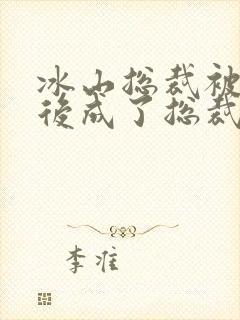 冰山总裁被
後成了总裁
李准